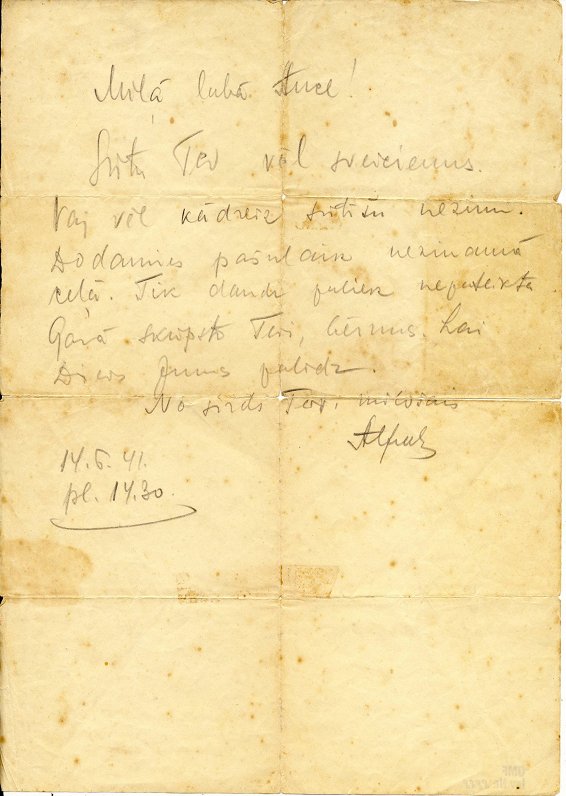 Mīļā labā Ance!
Sūtu Tev vēl sveicienus.
Vaj vēl kādreiz sūtīšu nezinu.
Dodamies pašulaik nezināmā
ceļā. Tik daudz paliek nepateikta
Garā skūpsto Tevi, bērnus. Lai
Dievs Jums palīdz.
No sirds Tevi mīlošais
Alfreds
14.6.41.
pl. 14.30.